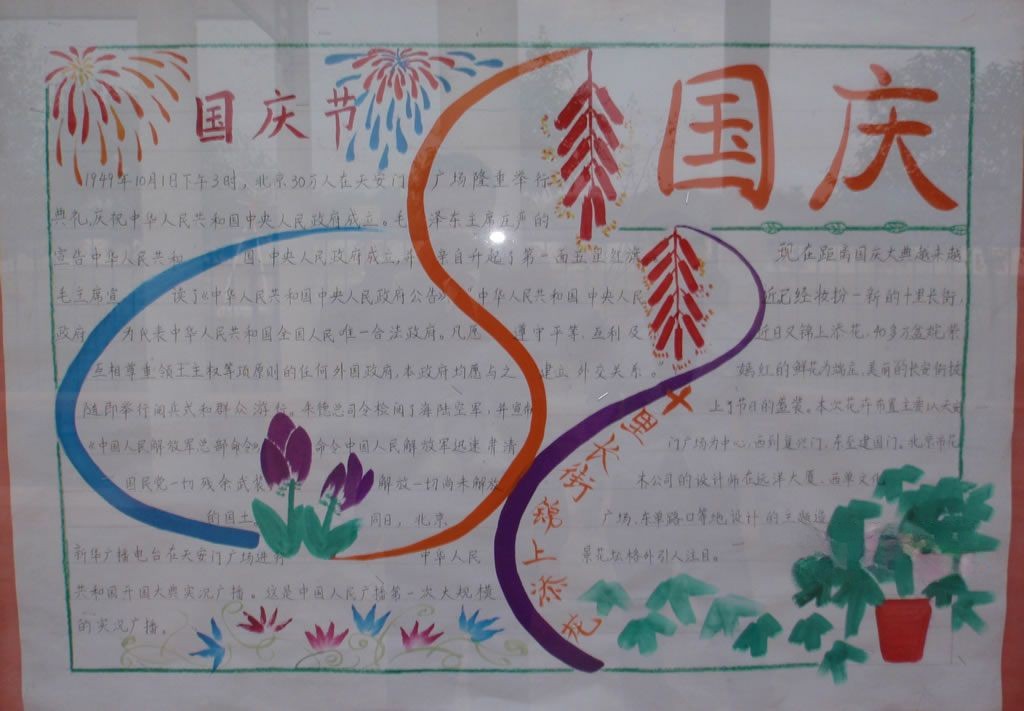 国庆节
1949年10月1日下午3时，北京30万人在天安门广场隆重举行
典礼，庆祝中华人民共和国中央人民政府成立。毛泽东主席庄严的
宣告中华人民共和国、中央人民政府成立，并亲自升起了第一面五星红旗
毛主席宣读了《中华人民共和国中央人民政府公告》"中华人民共和国中央人民
政府为代表中华人民共和国全国人民唯一合法政府。凡愿遵守平等、互利及
互相尊重领土主权等项原则的任何外国政府，本政府均愿与之建立外交关系。"
随即举行阅兵式和群众游行。朱德总司令检阅了海陆空军，并宣
《中国人民解放军总部命令》命令中国人民解放军迅速肃清
国民党一切残余武装 解放一切尚未解放
的国土。同日，北京
新华广播电台在天安门广场进行 中华人民
共和国开国大典实况广播。这是中国人民广播第一次大规模
的实况广播。
国庆
十里长街锦上添花
现在距离国庆大典越来越
近已经妆扮一新的十里长街，
近日又锦上添花，40多万盆
嫣红的鲜花为端庄、美丽的长安街披
上了节日的盛装。本次花卉布置主要以天安
门广场为中心，西到复兴门，东至建国门。北京市花
木公司的设计师在远洋大厦、西单文化
广场、东单路口等地设计的主题造
景花坛格外引人注目。